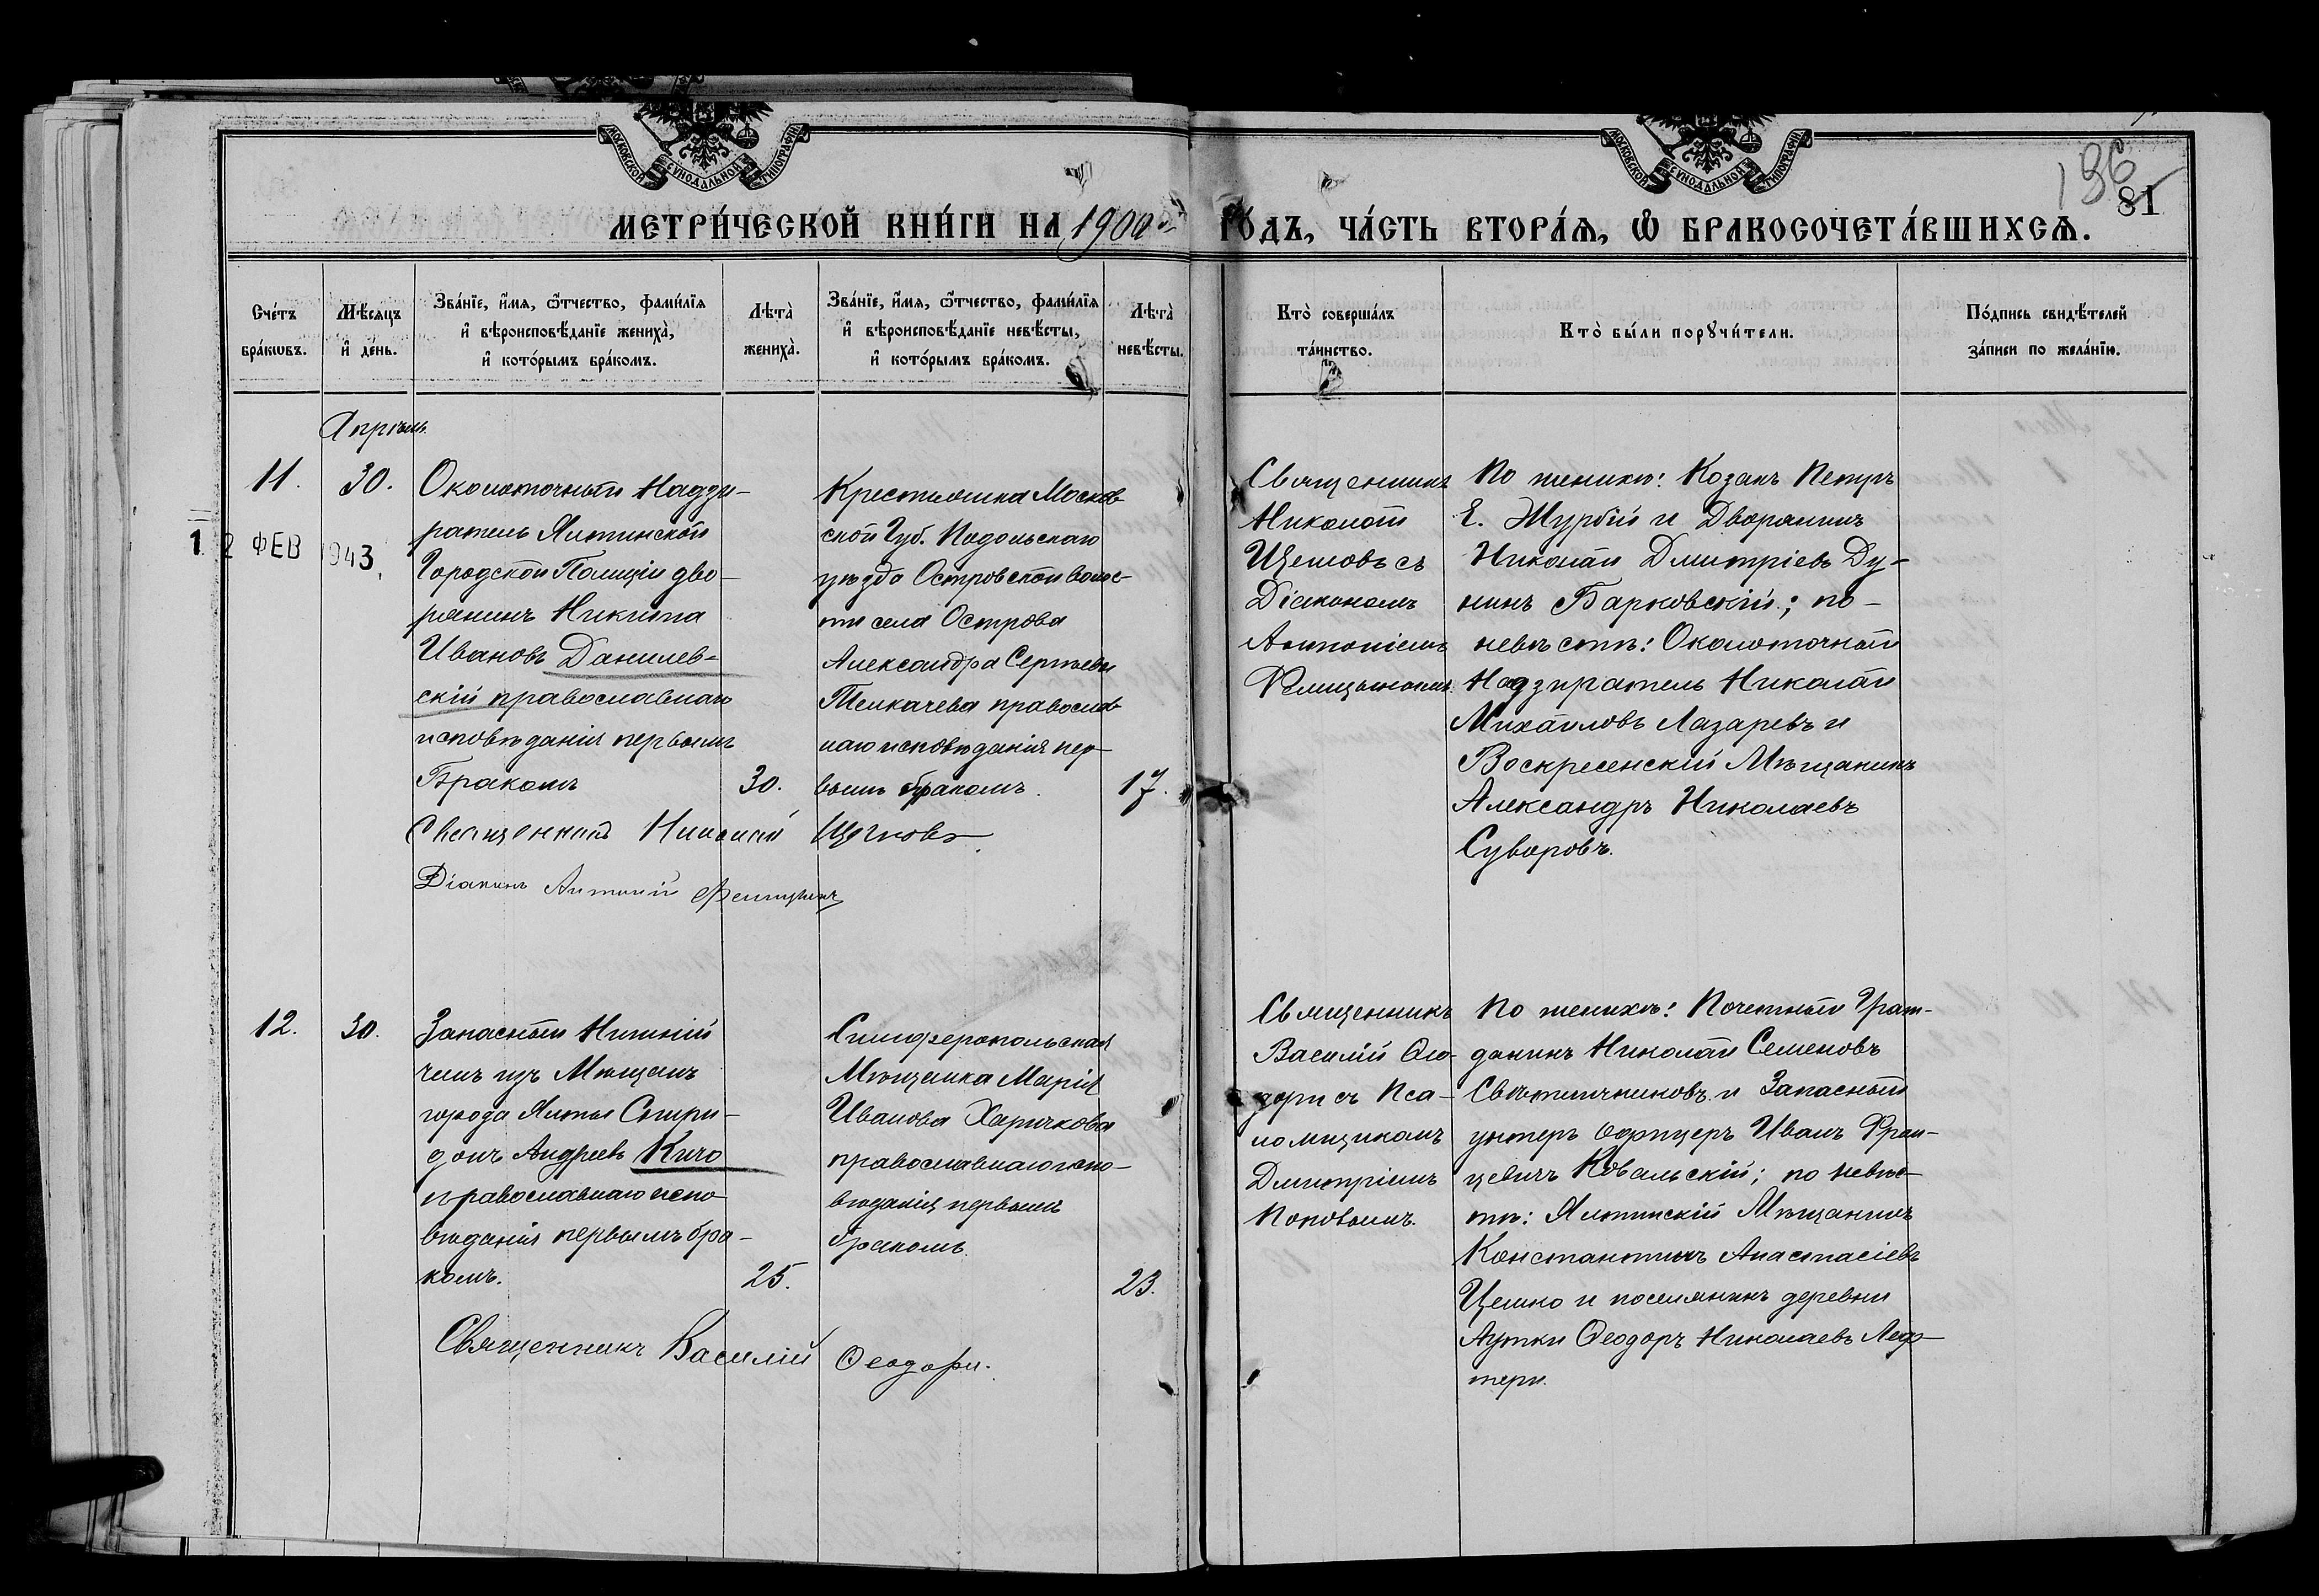 МОСКОВСКОЙ СУНОДАЛЬНОЙ ТИПОГРАФІИ
МОСКОВСКОЙ СУНОДАЛЬНОЙ ТИПОГРАФІИ
196
81
МЕТРИ́ЧЕСКОЙ КНИ́ГИ НА 1900й ГО́ДЪ, ЧА́СТЬ ВТОРА́Ѧ, Ѽ БРАКОСОЧЕТА́ВШИХСѦ.
Сче́тъ
бра́кѡвъ.
Мѣ́сяцъ
и҆ де́нь.
Зва́нїе, и҆́мя, ѻ҆́тчество, фами́лїя
и҆ вѣроисповѣ́данїе жениха̀,
и҆ кото́рымъ бра́комъ.
Лѣта̀
жениха̀.
Зва́нїе, и҆́мя, ѻ҆́тчество, фами́лїя
и҆ вѣроисповѣ́данїе невѣ́сты,
и҆ кото́рымъ бра́комъ.
Лѣта̀
невѣ́сты.
Кто̀ соверша́лъ
та́инство.
Кто̀ бы́ли порꙋчи́тели.
По́дпись свидѣ́телей
за́писи по жела́нїю.
Апрѣль
11.
30.
1 2 ФЕВ 1943
Околоточный Надзи-
ратель Ялтинской
Городской Полиціи дво-
рянинъ Никита
Ивановъ Данилев-
скій православнаго
исповѣданія первымъ
Бракомъ
30.
Крестьянка Москов-
ской Губ. Подольскаго
уѣзда Островской волос-
ти села Острова
Александра Сергѣева
Толкачева православ-
наго исповѣданія пер-
вымъ бракомъ.
17.
Священникъ Николай Щегловъ
Діаконъ Антоній
Священникъ
Николай
Щегловъ съ
Діакономъ
Антоніемъ
По женихѣ: Козакъ Петръ
Е. Журбій и Дворянинъ
Николай Дмитріевъ Ду-
нинъ Барковскій; по-
невѣстѣ: Околоточный
Надзиратель Николай
Михайловъ Лазаревъ и
Воскресенскій Мѣщанинъ
Александръ Николаевъ
Суворовъ.
12.
30.
Запасный Нижній
чинъ изъ Мѣщанъ
города Ялты Спири-
донъ Андреевъ Кичо
православнаго испо-
вѣданія первымъ бра-
комъ.
25.
Симферопольская
Мѣщанка Марія
Иванова Харичкова
православнаго испо-
вѣданія первымъ
бракомъ.
23.
Священникъ Василій Ѳеодори.
Священникъ
Василій Ѳео-
дори съ Пса-
ломщикомъ
Дмитріемъ
Поповымъ.
По женихѣ: Почетный Граж-
данинъ Николай Семеновъ
Свѣтличниковъ и Запасный
унтеръ офицеръ Иванъ Фран-
цевичъ Ковальскій; по невѣс-
тѣ: Ялтинскій Мѣщанинъ
Константинъ Анастасіевъ
Цешко и поселянинъ деревни
Аутки Ѳеодоръ Николаевъ Леф-
тери.